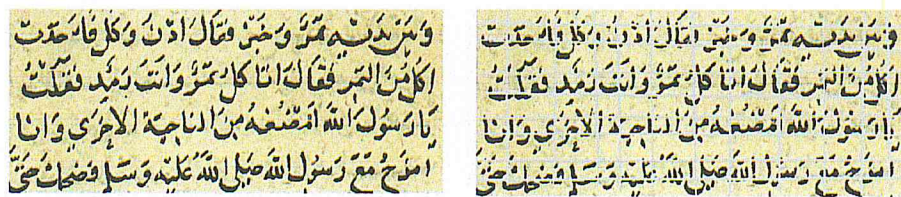 وبين يديه تمر وخبز فقال ادن وكل فاخذت
اكل من التمر فقال اتاكل تمر وانت رمد فقلت
يا رسول الله امضغه من الناحية الاخرى وانا
امزح مع رسول الله صلى الله عليه وسلم فضحك حتى
وبين يديه تمر وخبز فقال ادن وكل فاخذت
اكل من التمر فقال اتاكل تمر وانت رمد فقلت
يا رسول الله امضغه من الناحية الاخرى وانا
امزح مع رسول الله صلى الله عليه وسلم فضحك حتى